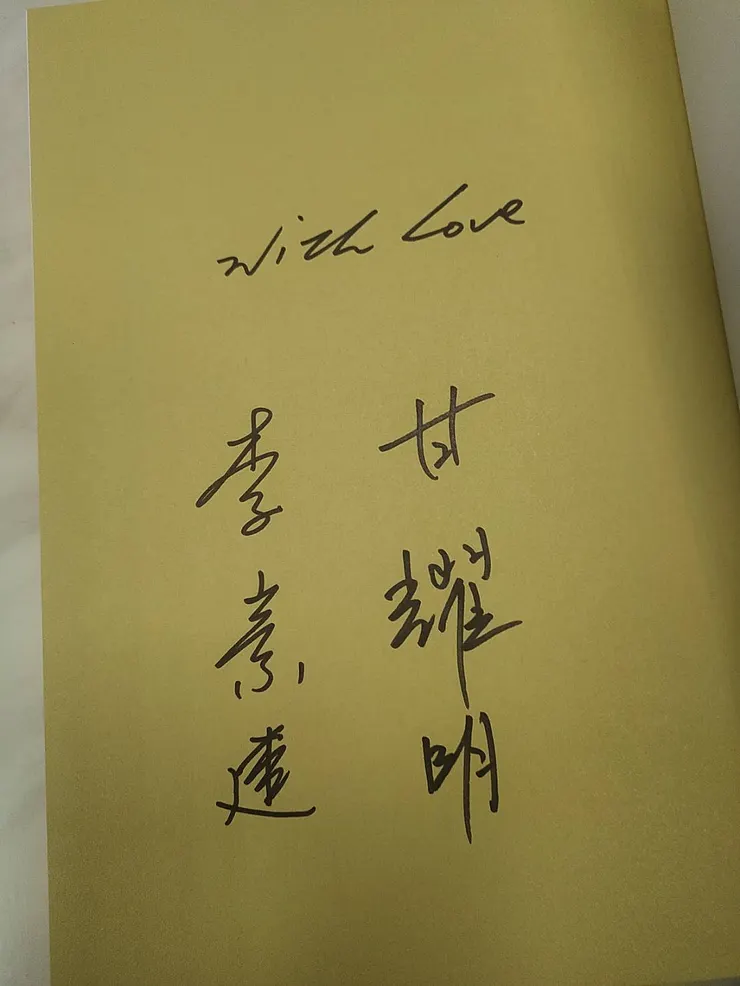 With Love
甘耀明
李崇建